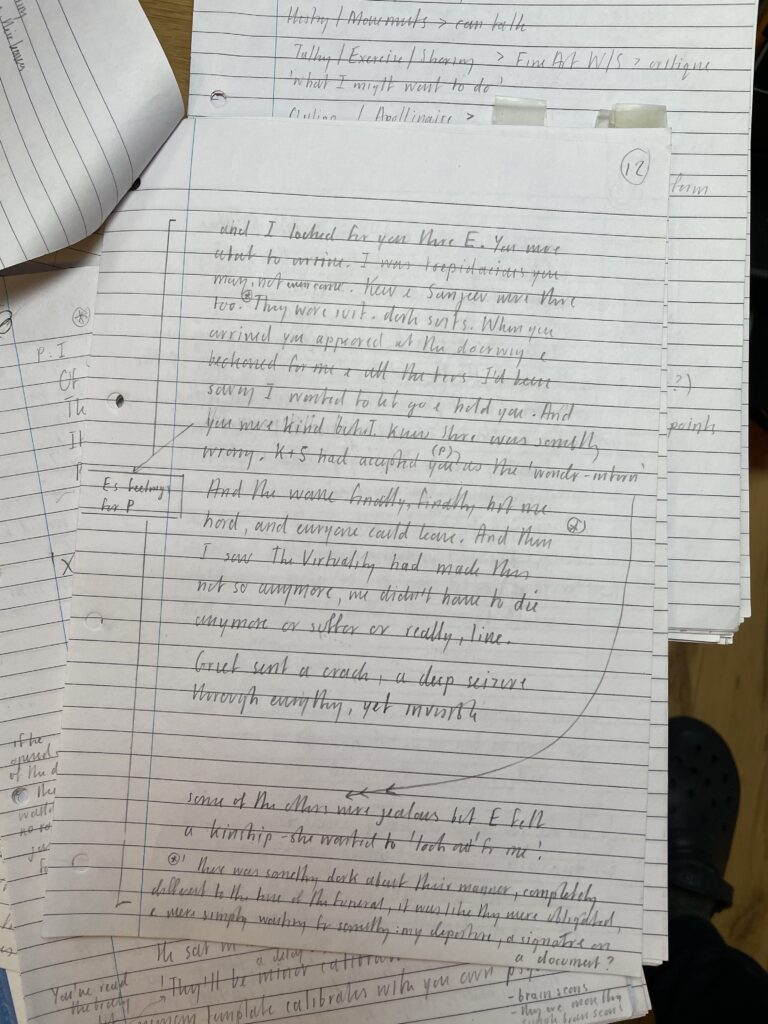 History / Movements > can talk
Talky / Exercise / Sharing > Fine Art W/S > critique
'what I might want to do'
/ Apollinaire >
12
form
?)
points
p. I
Of
Th
It
P
X
and I looked for you there E. You were
about to arrive. I was trepidacious you
may not even come. Kew & Sanjeev were there
too. They wore suit. dark suits. When you
arrived you appeared at the doorway &
beckoned for me & all the tears I'd been
saving I wanted to let go & hold you. And
you were kind but I knew there was somethg
wrong. K+S had accepted you (P) as the 'wonder-intern'
Es feelings
for P
And the wave finally, finally hit me
hard, and everyone could leave. And then
I saw The Virtuality had made this
not so anymore, we didn't have to die
anymore or suffer or really, live.
Grief sent a crack, a deep seizure
through everythg, yet invisible
some of the others were jealous but E felt
a kinship - she wanted to 'look out' for me!
there was somethg dark about their manner, completely
different to the time of the funeral, it was like they were obligated,
& were simply waiting for somethg: my departure, a signature on
a document?
if he
of the d
the
He sat in
a delay
You've read
the body
They'll be minor calibra
template calibrates with you own
- brain scans
- they are more thg
brain scans